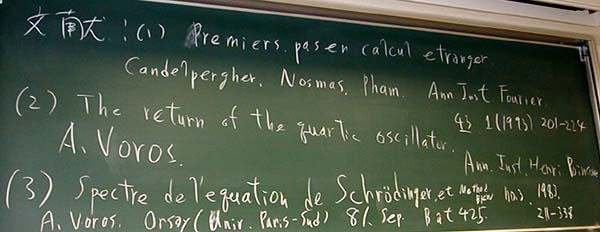 文献: (1) Premiers pas en calcul etranger.
Candelpergher, Nosmas, Pham. Ann Inst Fourier.
43 1 (1993) 201-224
(2) The return of the quartic oscillator.
A. Voros. Ann. Inst. Henri
(3) Spectre de l'equation de Schrödinger, et 1983.
A. Voros. Orsay (Univ. Paris-Sud) 81. Sep. Bat 425. 211-338